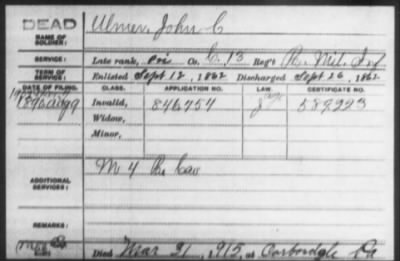 DEAD
NAME OF SOLDIER:
Ulmer, John C
SERVICE:
Late rank, Pri Co. C, 13 Reg't Pa. Mil. Inf
TERM OF SERVICE:
Enlisted Sept 12, 1862 Discharged Sept 26, 1862
DATE OF FILING. CLASS. APPLICATION NO. LAW. CERTIFICATE NO.
Invalid, 846454 589223
Widow,
Minor,
ADDITIONAL SERVICES:
M 4 Pa Cav
REMARKS:
Died Mar 21, 1915, at Carbondale Pa